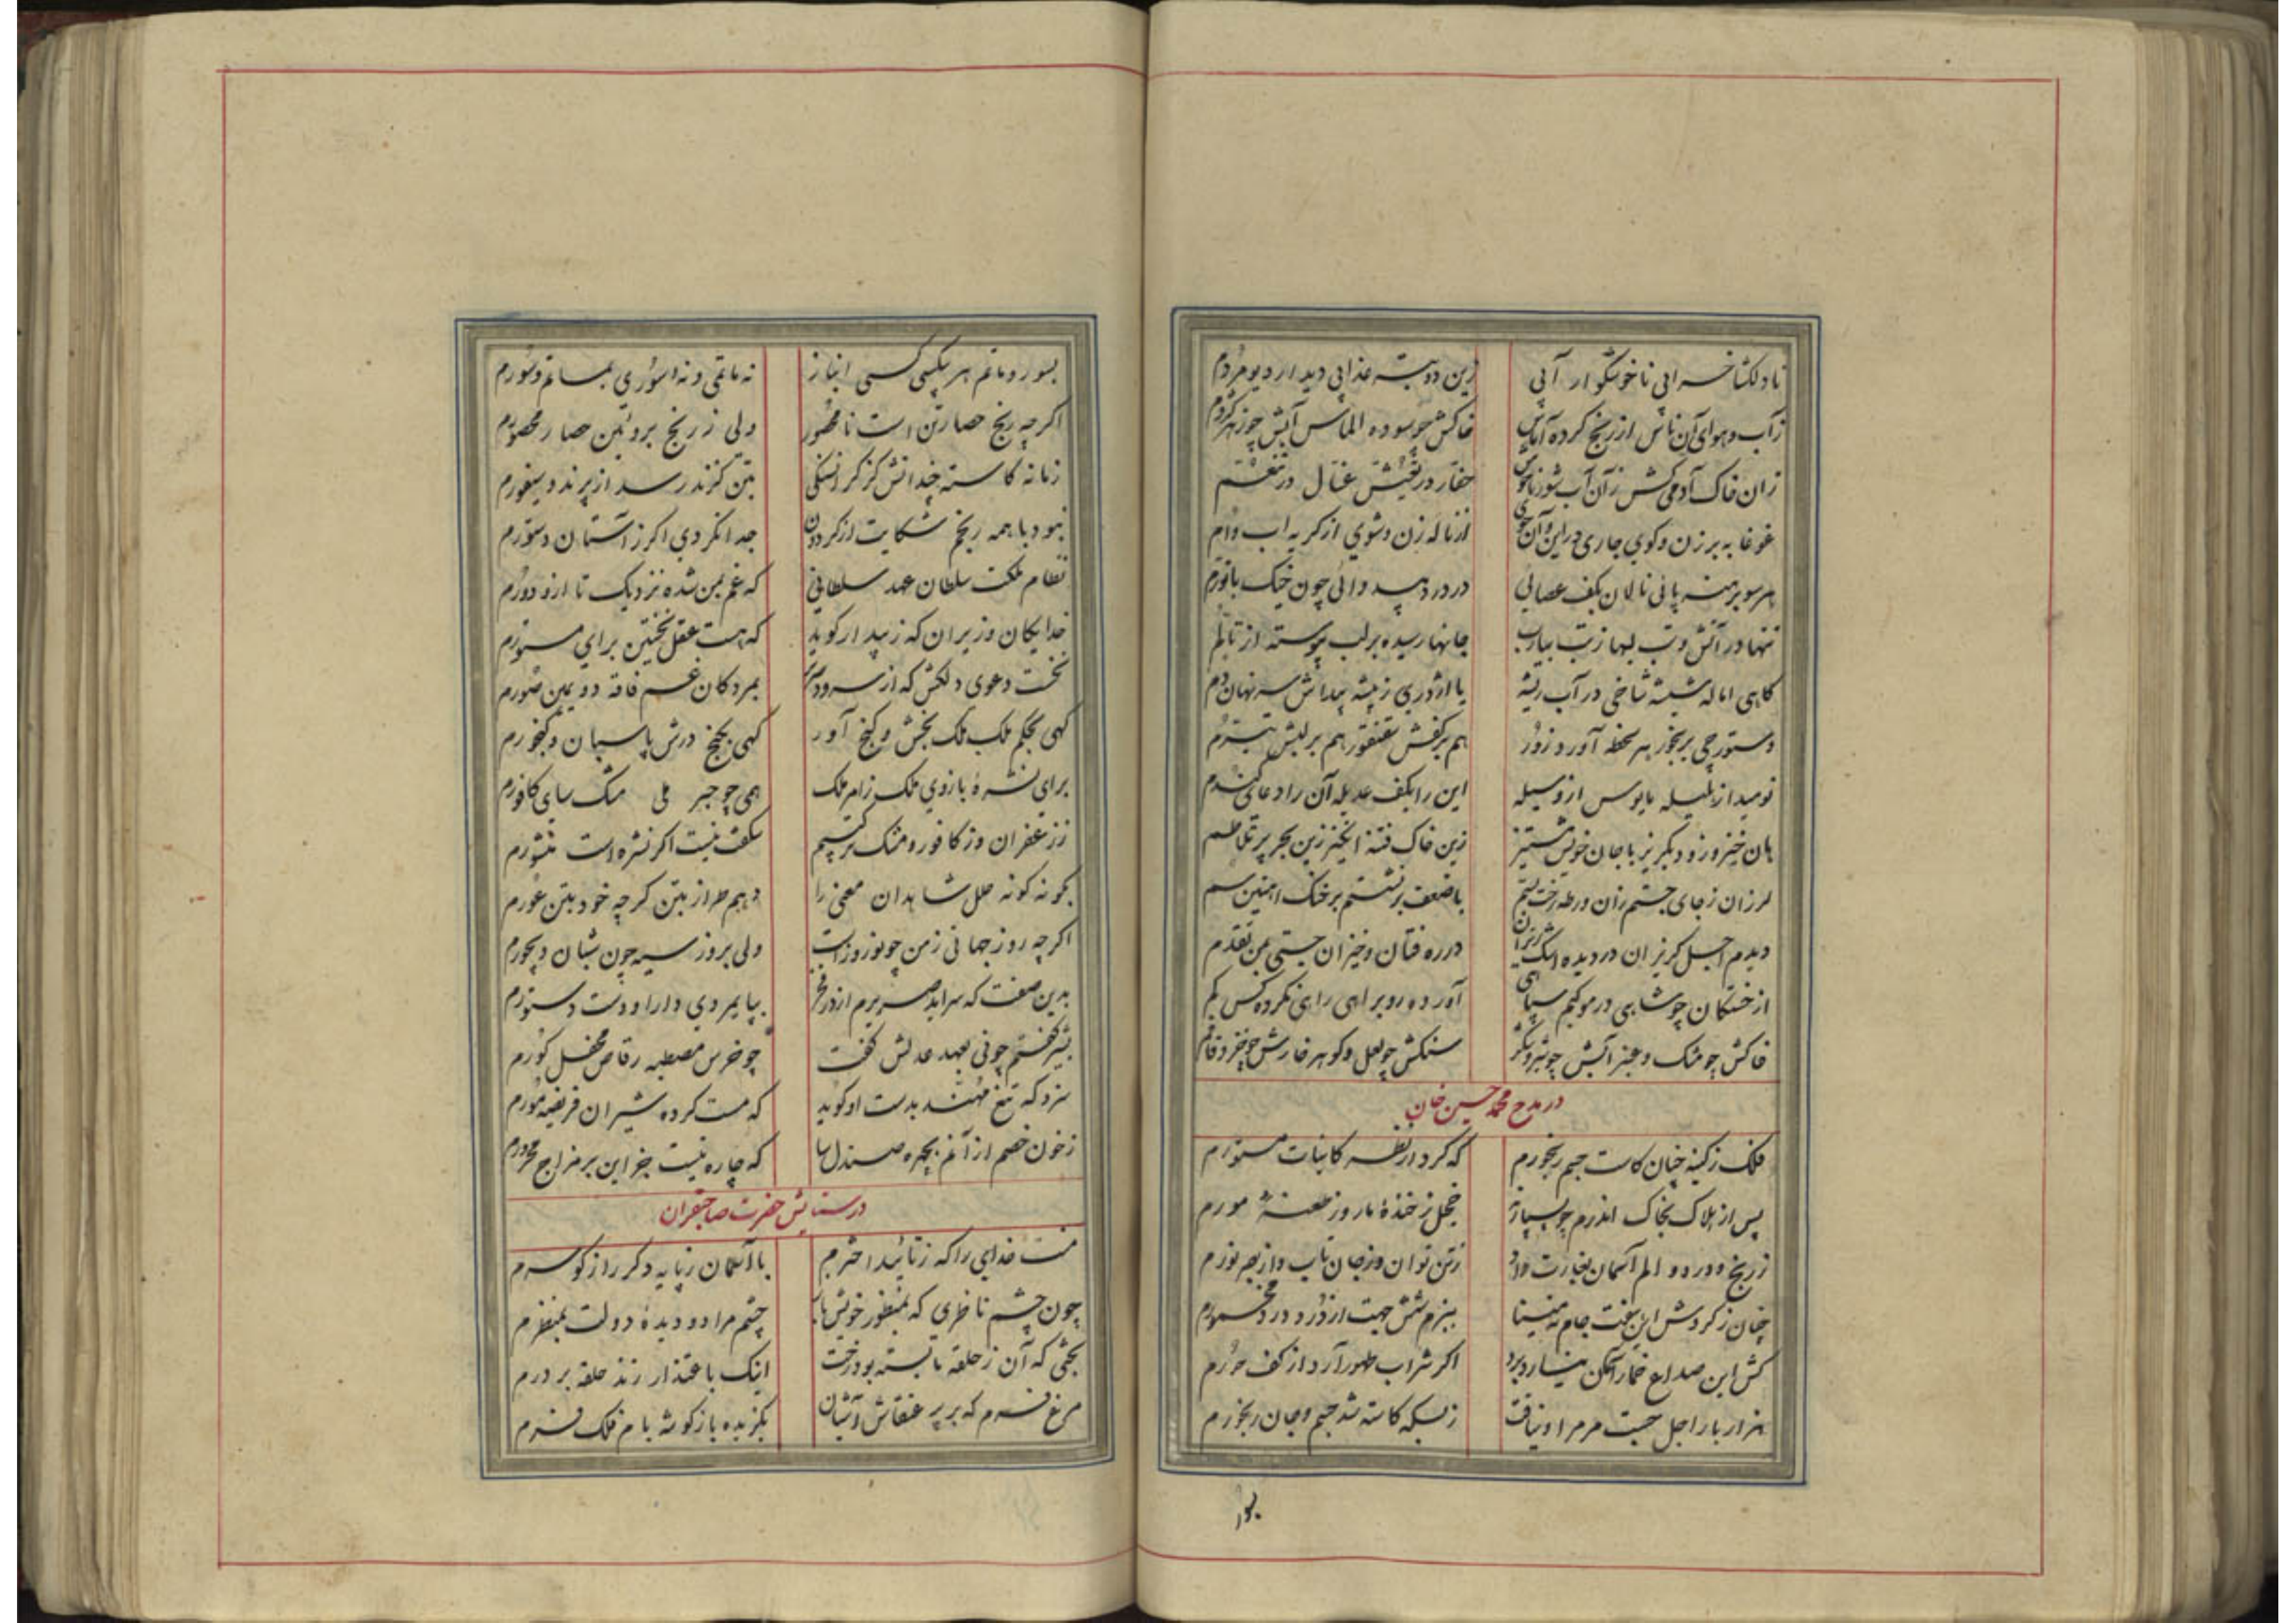 نادلکشا خرابی ناخوشگوار آبی زین دو بتر عذابی دیدار دیو مردم
زآب و هوای آن ناس از رنج کرده آماس خاکش چو سوده الماس آبش چو زهر کژدم
زان خاک آدمی کش زآن آب شور ناخوش حفار در تعیش غسال در تنعم
غوغا به برزن و کوی جاری در این و آن جوی از ناله زن و شوی از گریه اب و ام
هر سو برهنه پائی نالان بکف عصائی در درد بیدوائی چون خیک با تورم
تنها در آتش و تب لبها ز تب بیارب جانها رسیده بر لب پیوسته از تألم
گاهی اماله شیشه شاخی در آب ریشه یا اژدری ز بیشه پیداش سر نهان دم
دستورجی برنجور هر لحظه آورد زور هم بر کفش سقنقور هم بر لبش
نومید از بلیله مایوس از وسیله این را بکف عدیله آن را دعای گندم
هان خیز و زود بگریز با جان خویش مستیز زین خاک فتنه انگیز زین بحر پر تلاطم
لرزان ز جای جستم زان ورطه رخت بستم با ضعف برنشستم بر خنگ آهنین سم
دیدم اجل گریزان در دیده اشک ریزان در ره فتان و خیزان جستی بمن تقدم
از خستگان چو شاهی در موکبم سپاهی آورده رو براهی راهی نکرده کس گم
خاکش چو مشک و عنبر آبش چو شیر و شکر سنگش چو لعل و گوهر خارش چو خز و قاقم
در مدح محمد حسین خان
فلک ز کینه چنان کاست جسم رنجورم که کرد از نظر کاینات مستورم
پس از هلاک بخاک اندرم چو بسپارند خجل ز خنده مار و ز طعنه مورم
ز رنج و درد و الم آسمان بغارت داد ز تن توان و ز جان تاب و از بصر نورم
چنان ز گردش این هفت جام نه مینا ببزم شش جهت از درد درد مخمورم
کش این صداع خمار آسمان نیارد برد اگر شراب طهور آرد از کف حورم
هزار بار اجل جست مر مرا و نیافت ز بسکه کاسته شد جسم و جان رنجورم
بسور
بسور و ماتم هر بیکسی کسی انباز نه ماتمی و نه سوری بماتم و سورم
اگر چه رنج حصار تن است نامحصور ولی ز رنج بروئین حصار محصورم
زمانه کاسته چندانش کز گرانسنگی بتن گزند رسد از پرند و سیفورم
نبود با همه رنجم شکایت از گردون جدا نکردی اگر ز آستان دستورم
نظام ملکت سلطان عهد سلطانی که غم بمن شده نزدیک تا ازو دورم
خدایگان وزیران که زیبد ار گوید که هست عقل نخستین برای مستورم
نخست دعوی دلکش که از سرود بمردگان غم فاقه دویمین صورم
گهی بحکم ملک ملک بخش و گنج آور گهی بگنج درش پاسبان و گنجورم
برای نشره بازوی ملک زامر ملک همی چو حبر ملی مشک سای کافورم
ز زعفران و ز کافور و مشک ترکیبم شگفت نیست اگر نشره است منشورم
بگونه گونه حلل شاهدان معنی را دهم طراز بتن گرچه خود بتن عورم
اگر چه روز جهانی ز من چو نوروز است ولی بروز سیه چون شبان دیجورم
بدین صفت که سراید صریرم از در فخر بپایمردی دارا و دست دستورم
بشیر گفتم چونی بعهد عدلش گفت چو خرس مصطبه رقاص محفل گورم
سزد که تیغ مهند بدست او گوید که مست کرده شیران فریضه مورم
ز خون خصم از آنم بچهره صندل سا که چاره نیست جز این بر مزاج محرورم
در ستایش حضرت صاحبقران
منت خدای را که ز تائید اخترم با آسمان ز پایه دگر راز گو سرم
چون چشم ناظری که بمنظور خویش باز چشم مرا دو دیده دولت بمنظرم
بختی که آن ز حلقه ما بسته بود رخت اینک باعتذار زند حلقه بر درم
مرغ فرم که بر پر عنقاش آشیان بگزیده باز گوشه بام فلک فرم